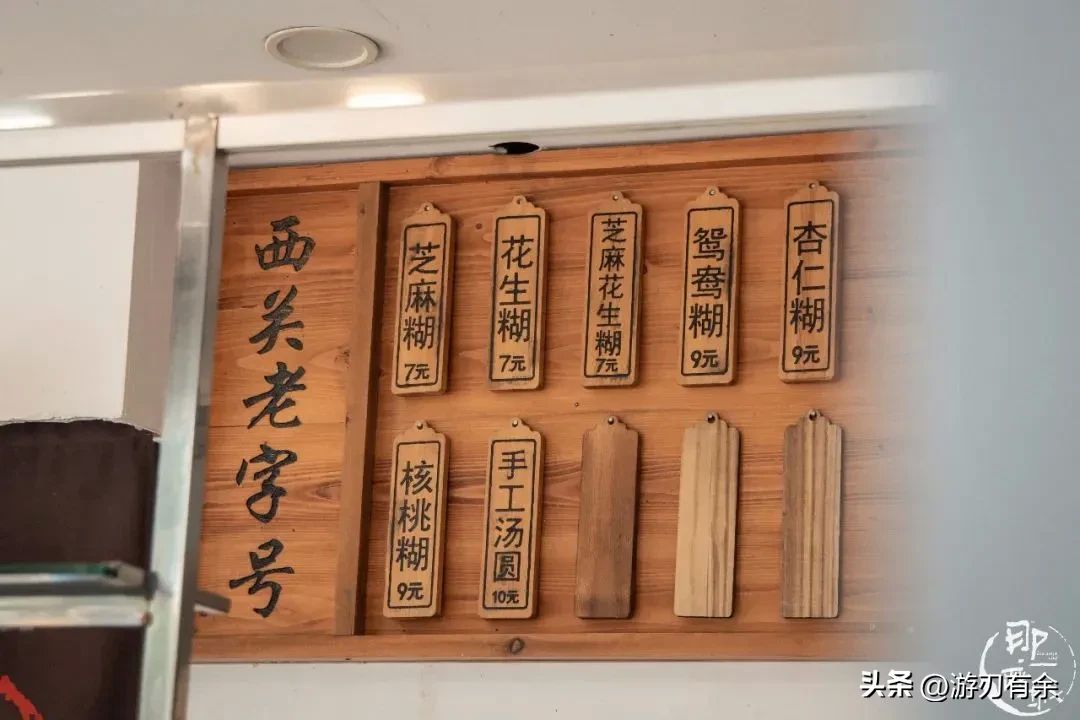 西关老字号
芝麻糊
7元
花生糊
7元
芝麻花生糊
7元
鸳鸯糊
9元
杏仁糊
9元
核桃糊
9元
手工汤圆
10元
头条 @游刃有余